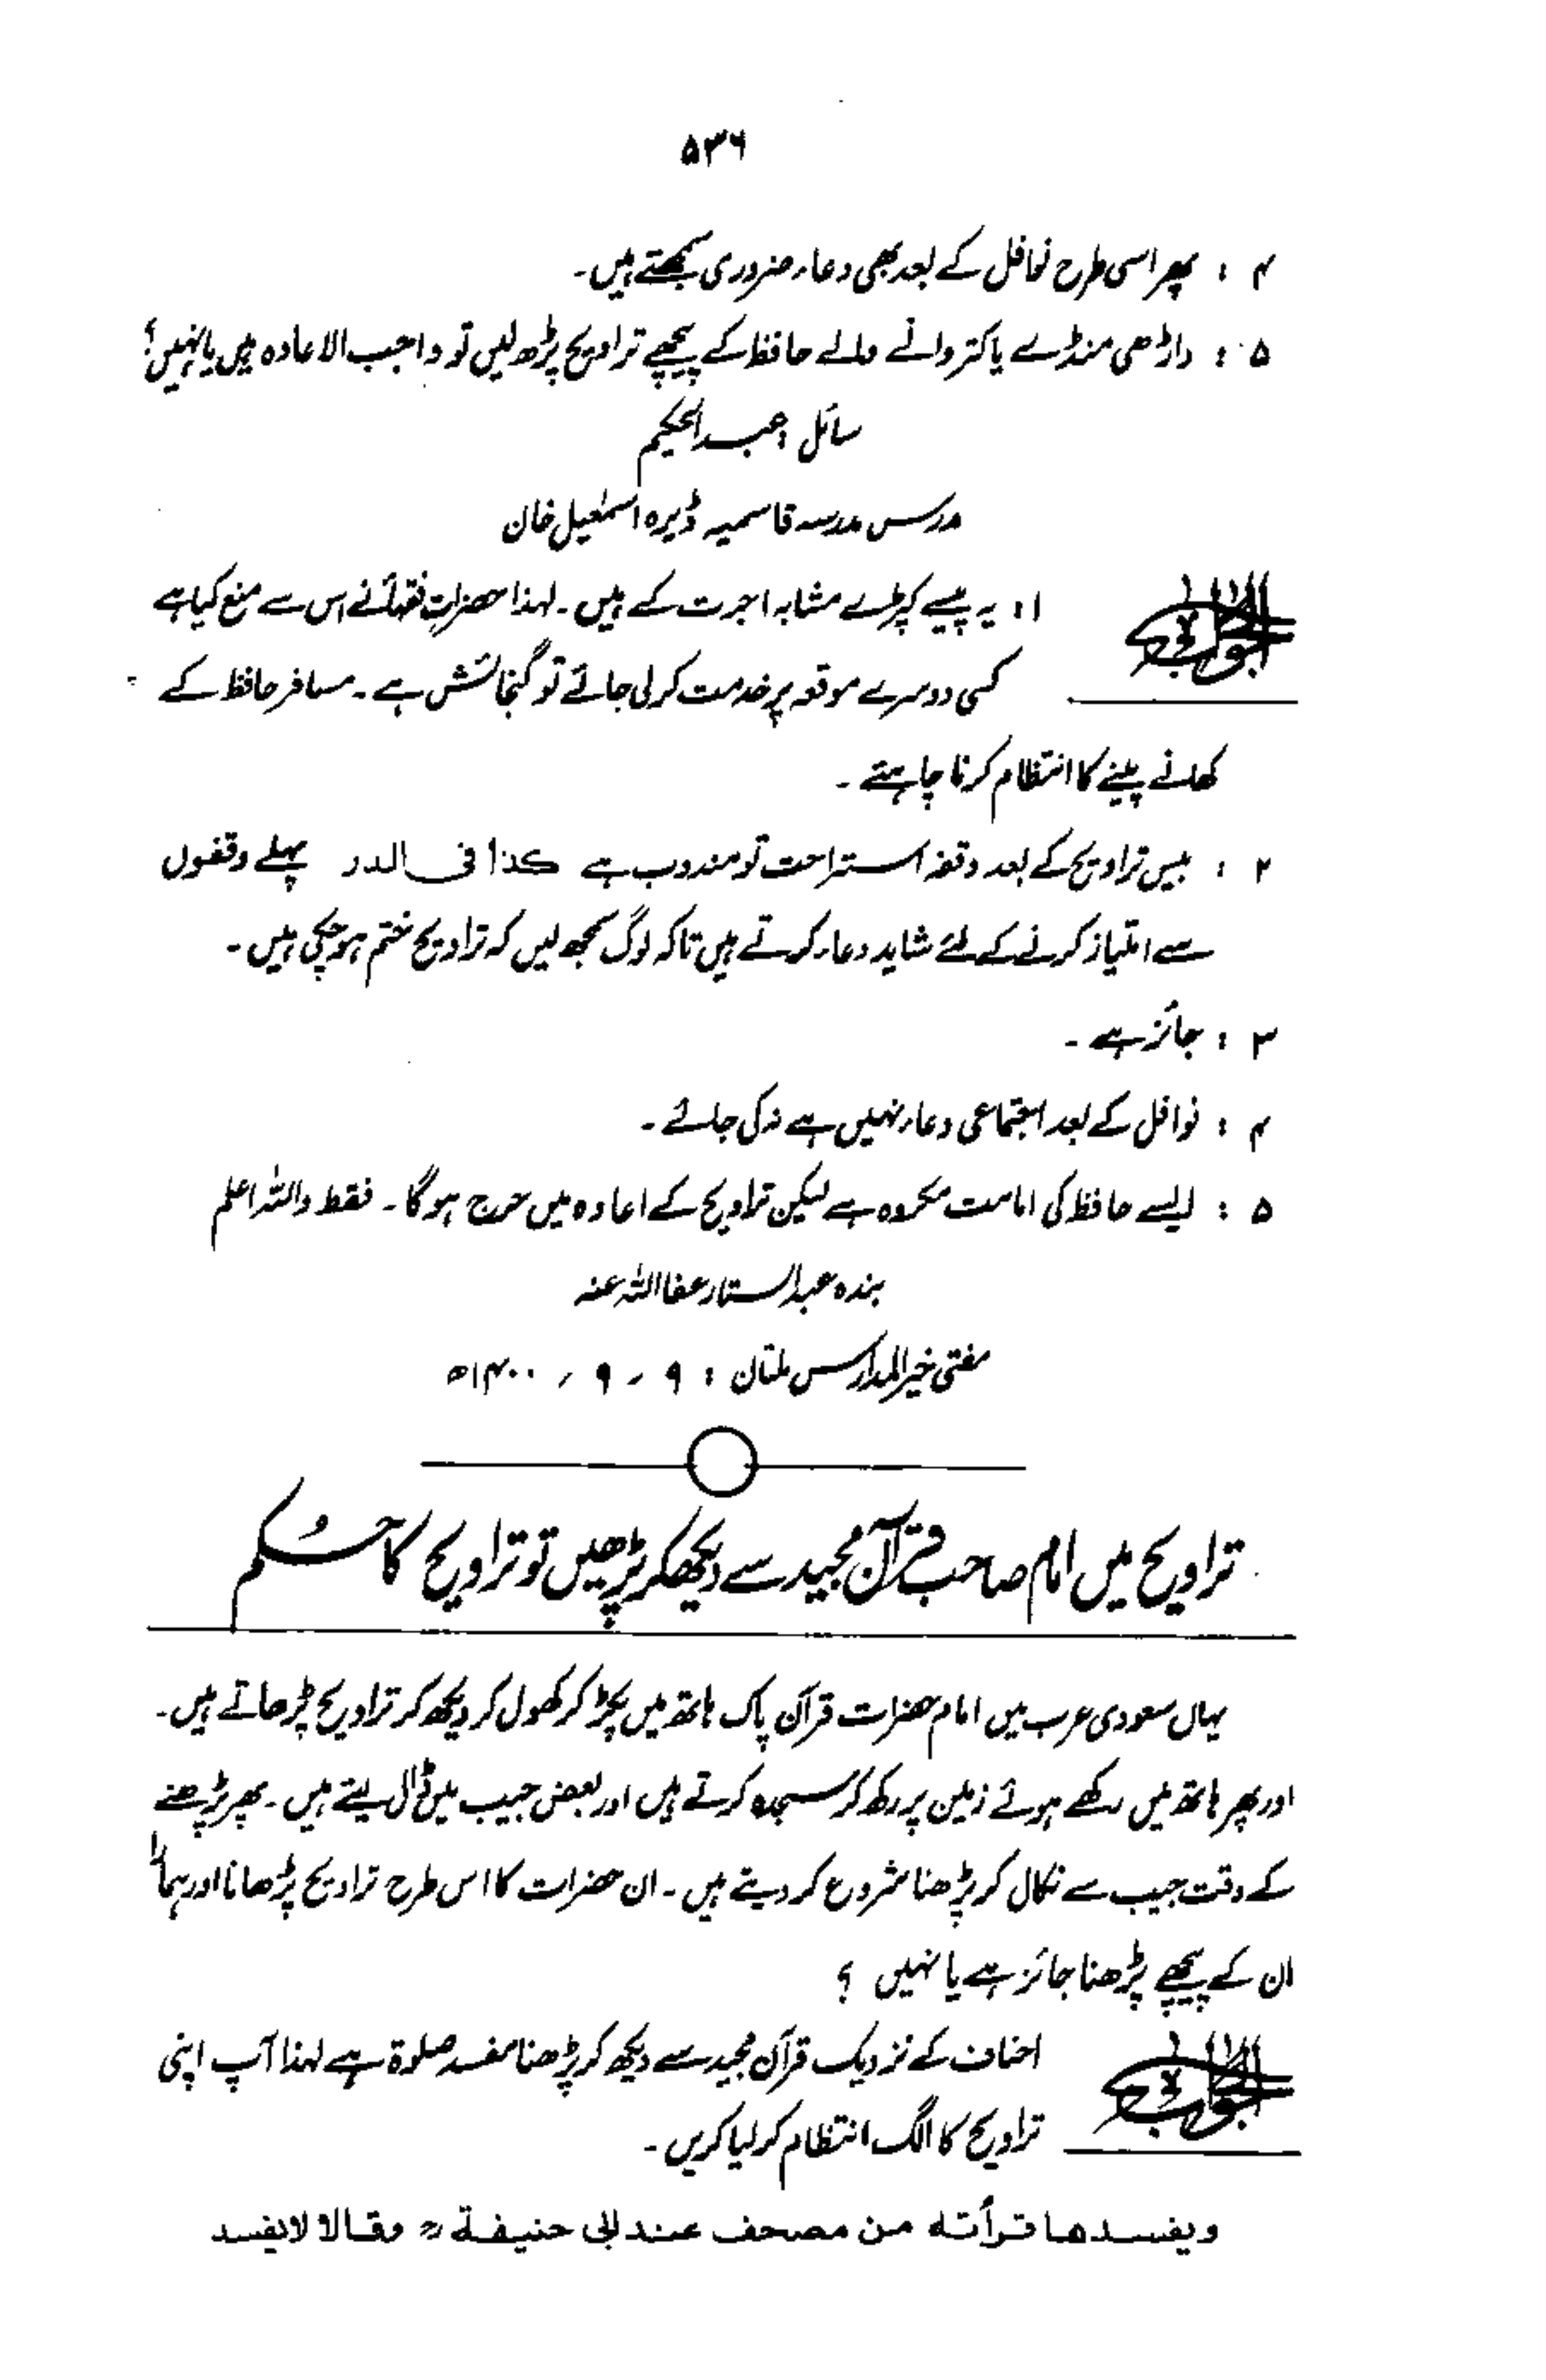 ۵۳۶
۴ : پھر اسی طرح نوافل کے بعد بھی دعاء ضروری سمجھتے ہیں۔
۵ : داڑھی منڈے یا کتروانے والے حافظ کے پیچھے تراویح پڑھ لیں تو واجب الاعادہ ہیں یا نہیں؟
سائل : عبدالحکیم
مدرس مدرسہ قاسمیہ ڈیرہ اسمٰعیل خان
الجواب ۱ : یہ پیسے کپڑے مشابہ اجرت کے ہیں۔ لہذا حضراتِ فقہاء نے اس سے منع کیا ہے
کسی دوسرے موقعہ پر خدمت کرلی جائے تو گنجائش ہے۔ مسافر حافظ کے
کھانے پینے کا انتظام کرنا چاہئے۔
۲ : بیس تراویح کے بعد وقفہ استراحت تو مندوب ہے کذا فی الدر پہلے وقفوں
سے امتیاز کرنے کے لئے شاید دعاء کرتے ہیں تاکہ لوگ سمجھ لیں کہ تراویح ختم ہوچکی ہیں۔
۳ : جائز ہے۔
۴ : نوافل کے بعد اجتماعی دعاء نہیں ہے نہ کی جائے۔
۵ : ایسے حافظ کی امامت مکروہ ہے لیکن تراویح کے اعادہ میں حرج ہوگا۔ فقط واللہ اعلم
بندہ عبدالستار عفا اللہ عنہ
مفتی خیرالمدارس ملتان : ۹ ر ۹ ر ۱۴۰۰ھ
تراویح میں امام صاحب قرآن مجید سے دیکھ کر پڑھیں تو تراویح کا حکم
یہاں سعودی عرب میں امام حضرات قرآن پاک ہاتھ میں پکڑ کر کھول کر دیکھ کر تراویح پڑھاتے ہیں۔
اور پھر ہاتھ میں رکھے ہوئے زمین پر رکھ کر سجدہ کرتے ہیں اور بعض جیب میں ڈال لیتے ہیں۔ پھر پڑھنے
کے وقت جیب سے نکال کر پڑھنا شروع کر دیتے ہیں۔ ان حضرات کا اس طرح تراویح پڑھانا اور ہمارا
ان کے پیچھے پڑھنا جائز ہے یا نہیں ؟
الجواب احناف کے نزدیک قرآن مجید سے دیکھ کر پڑھنا مفسد صلوٰۃ ہے لہذا آپ اپنی
تراویح کا الگ انتظام کر لیا کریں۔
ویفسدها قرأته من مصحف عند ابی حنیفة ؒ وقالا لا یفسد